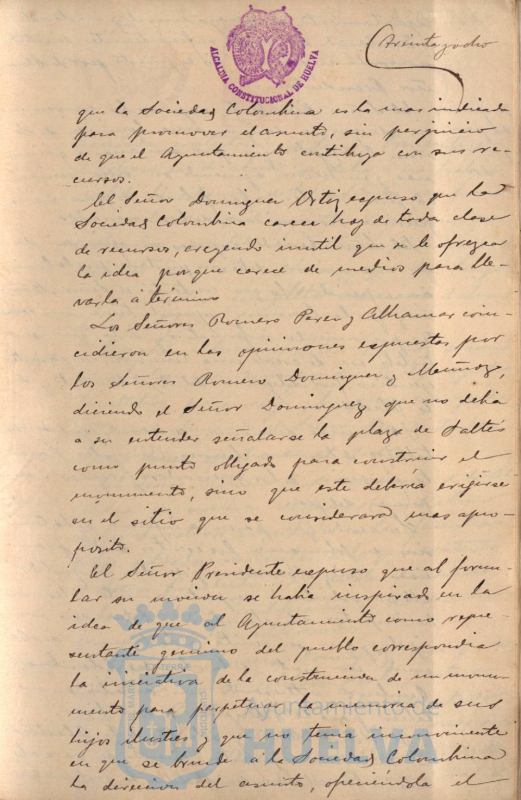 Treinta y ocho
ALCALDIA CONSTITUCIONAL DE HUELVA
que la Sociedad Colombina es la mas indicada
para promover el asunto, sin perjuicio
de que el Ayuntamiento contribuya con sus re-
cursos.
El Señor Dominguez Ortiz expuso que la
Sociedad Colombina carece hoy de toda clase
de recursos, creyendo inutil que se le ofrezca
la idea porque carece de medios para lle-
varla á término
Los Señores Romero Perez y Alhamar coin-
cidieron en las opiniones expuestas por
los Señores Romero Dominguez y Muñoz,
diciendo el Señor Dominguez que no debia
a su entender señalarse la plaza de Saltés
como punto obligado para construir el
monumento, sino que este deberia erigirse
en el sitio que se considerara mas apro-
posito.
El Señor Presidente expuso que al formu-
lar su mocion se habia inspirado en la
idea de que al Ayuntamiento como repre-
sentante genuino del pueblo correspondia
la iniciativa de la construccion de un monu-
mento para perpetuar la memoria de sus
hijos ilustres y que no tenia inconveniente
en que se brinde a la Sociedad Colombina
la direccion del asunto, ofreciéndola el
Ayuntamiento de
HUELVA